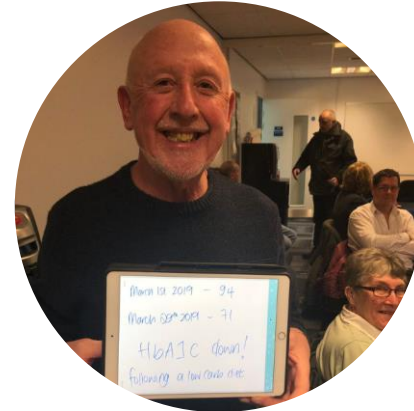 March 1st 2019 - 94
March 29th 2019 - 71
HbA1C down!
following a low carb diet